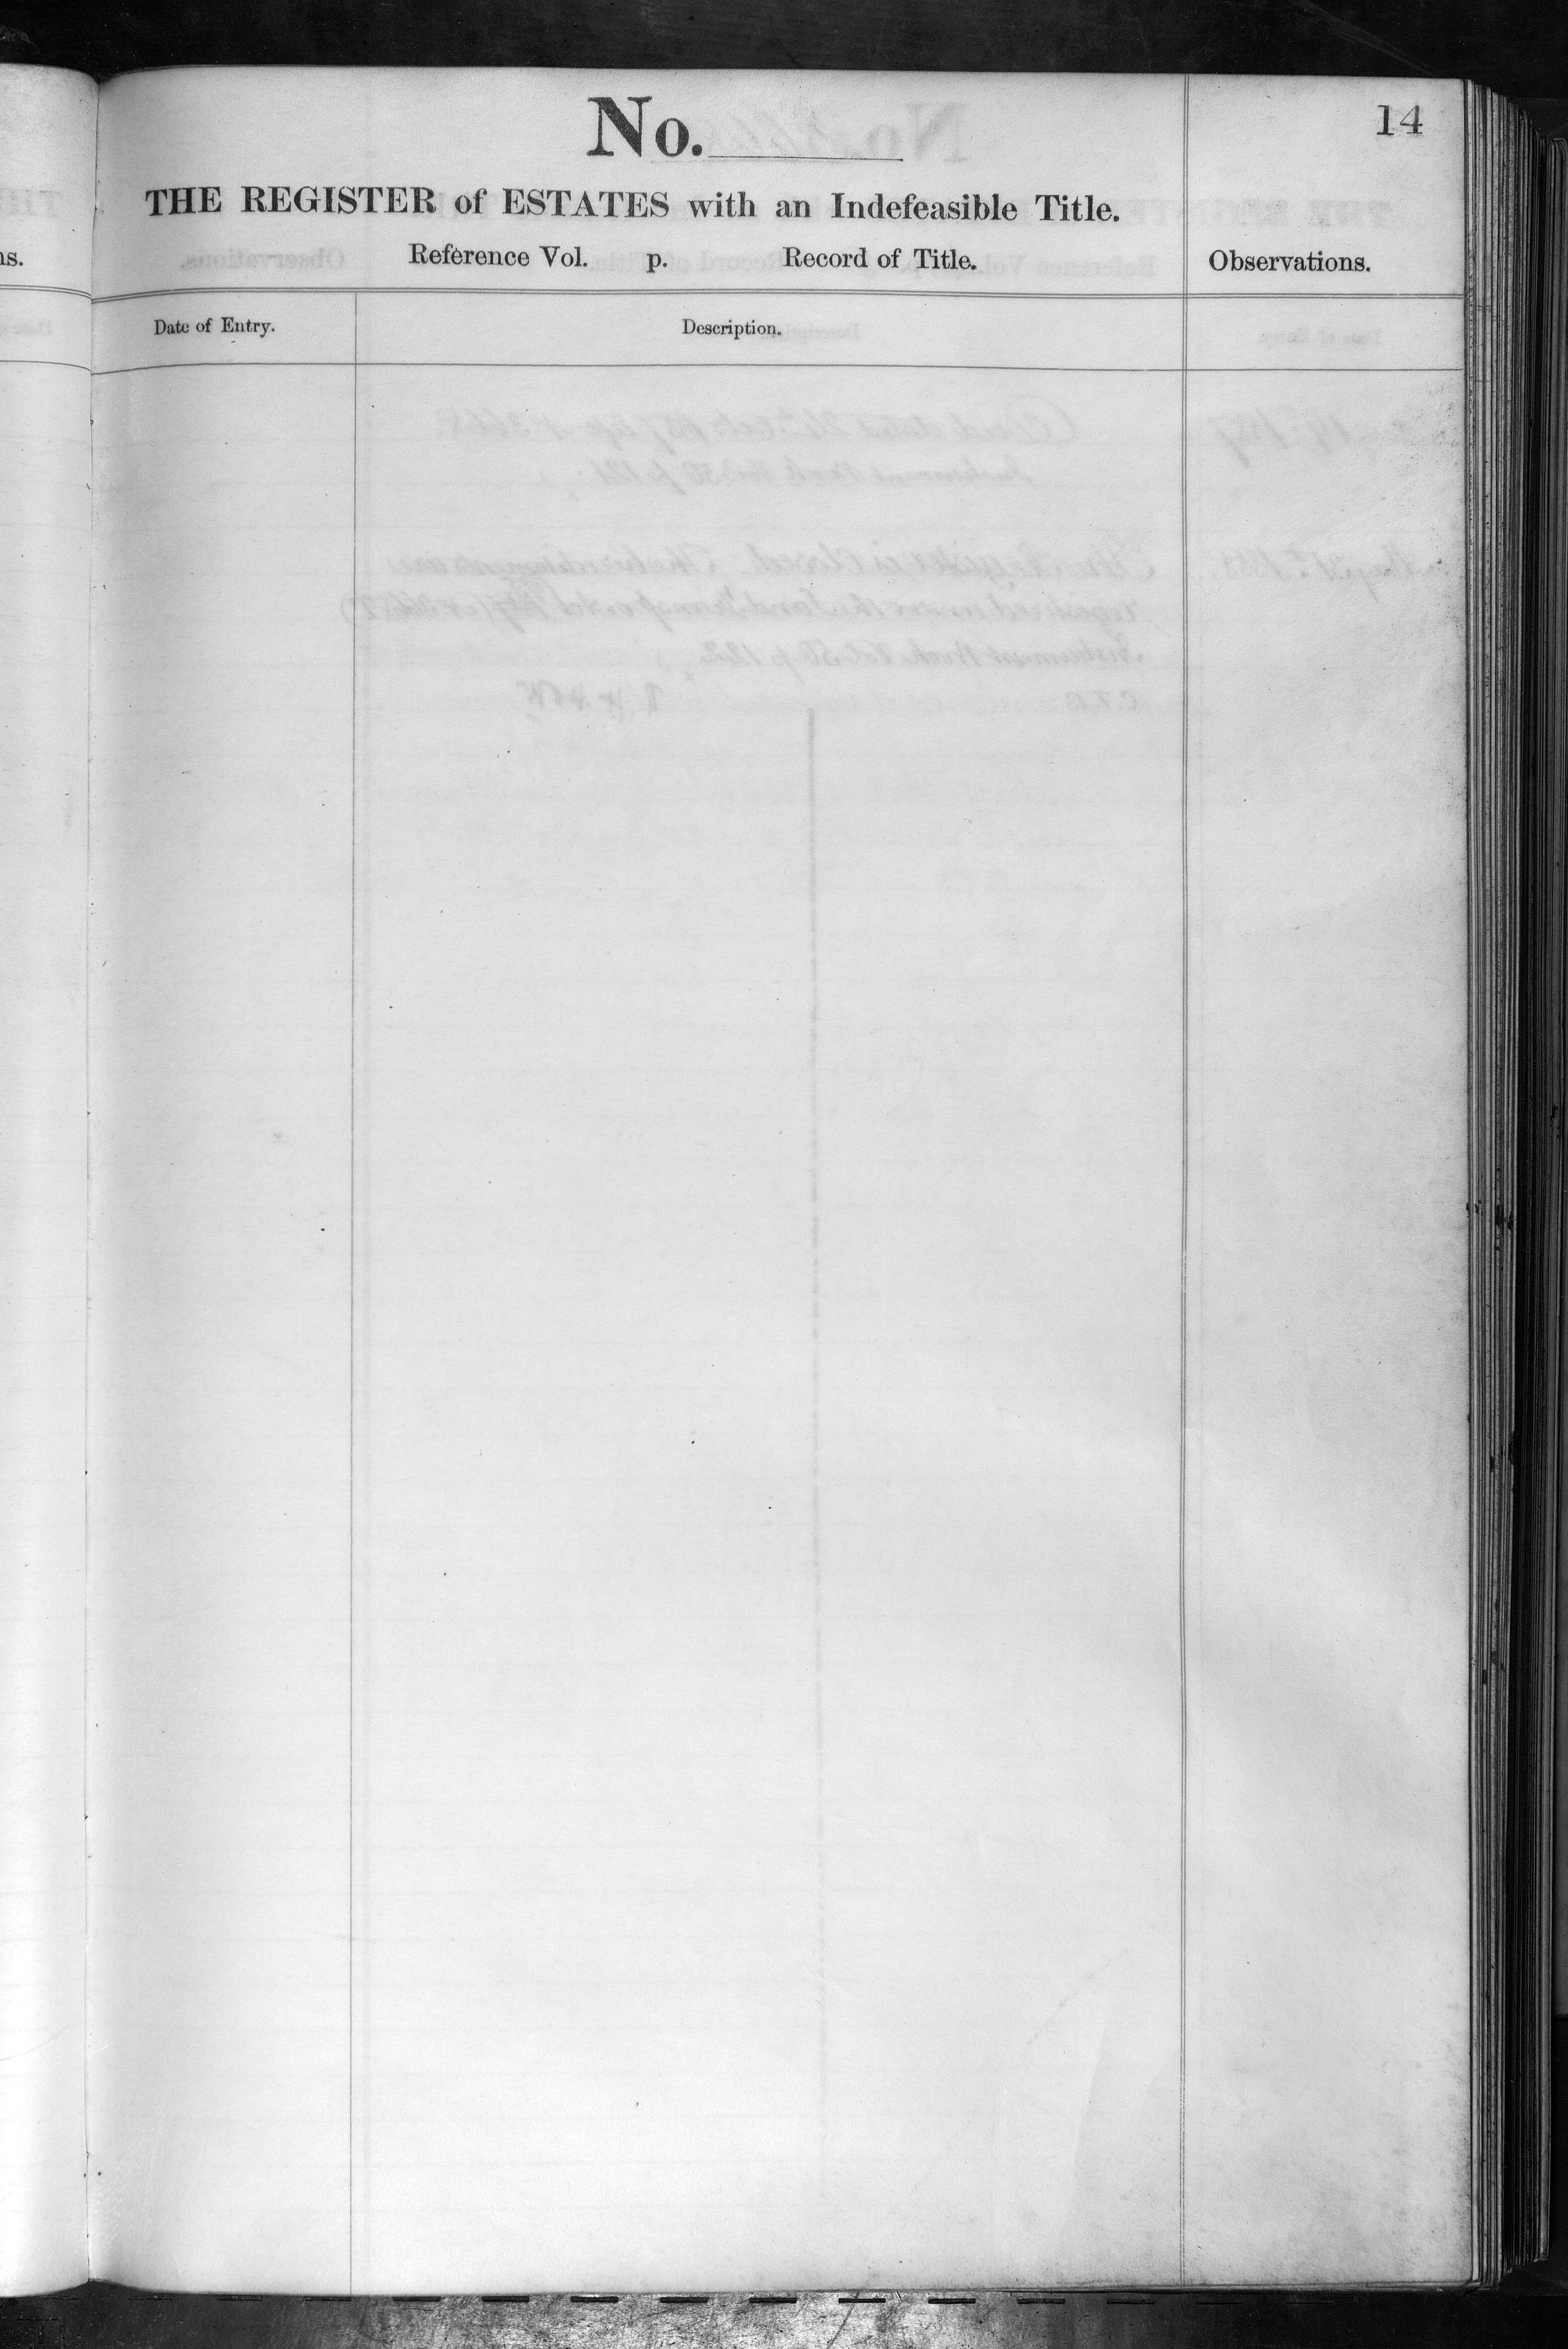 14
No.
THE REGISTER of ESTATES with an Indefeasible Title.
Reference Vol. p. Record of Title.
Observations.
Date of Entry.
Description.